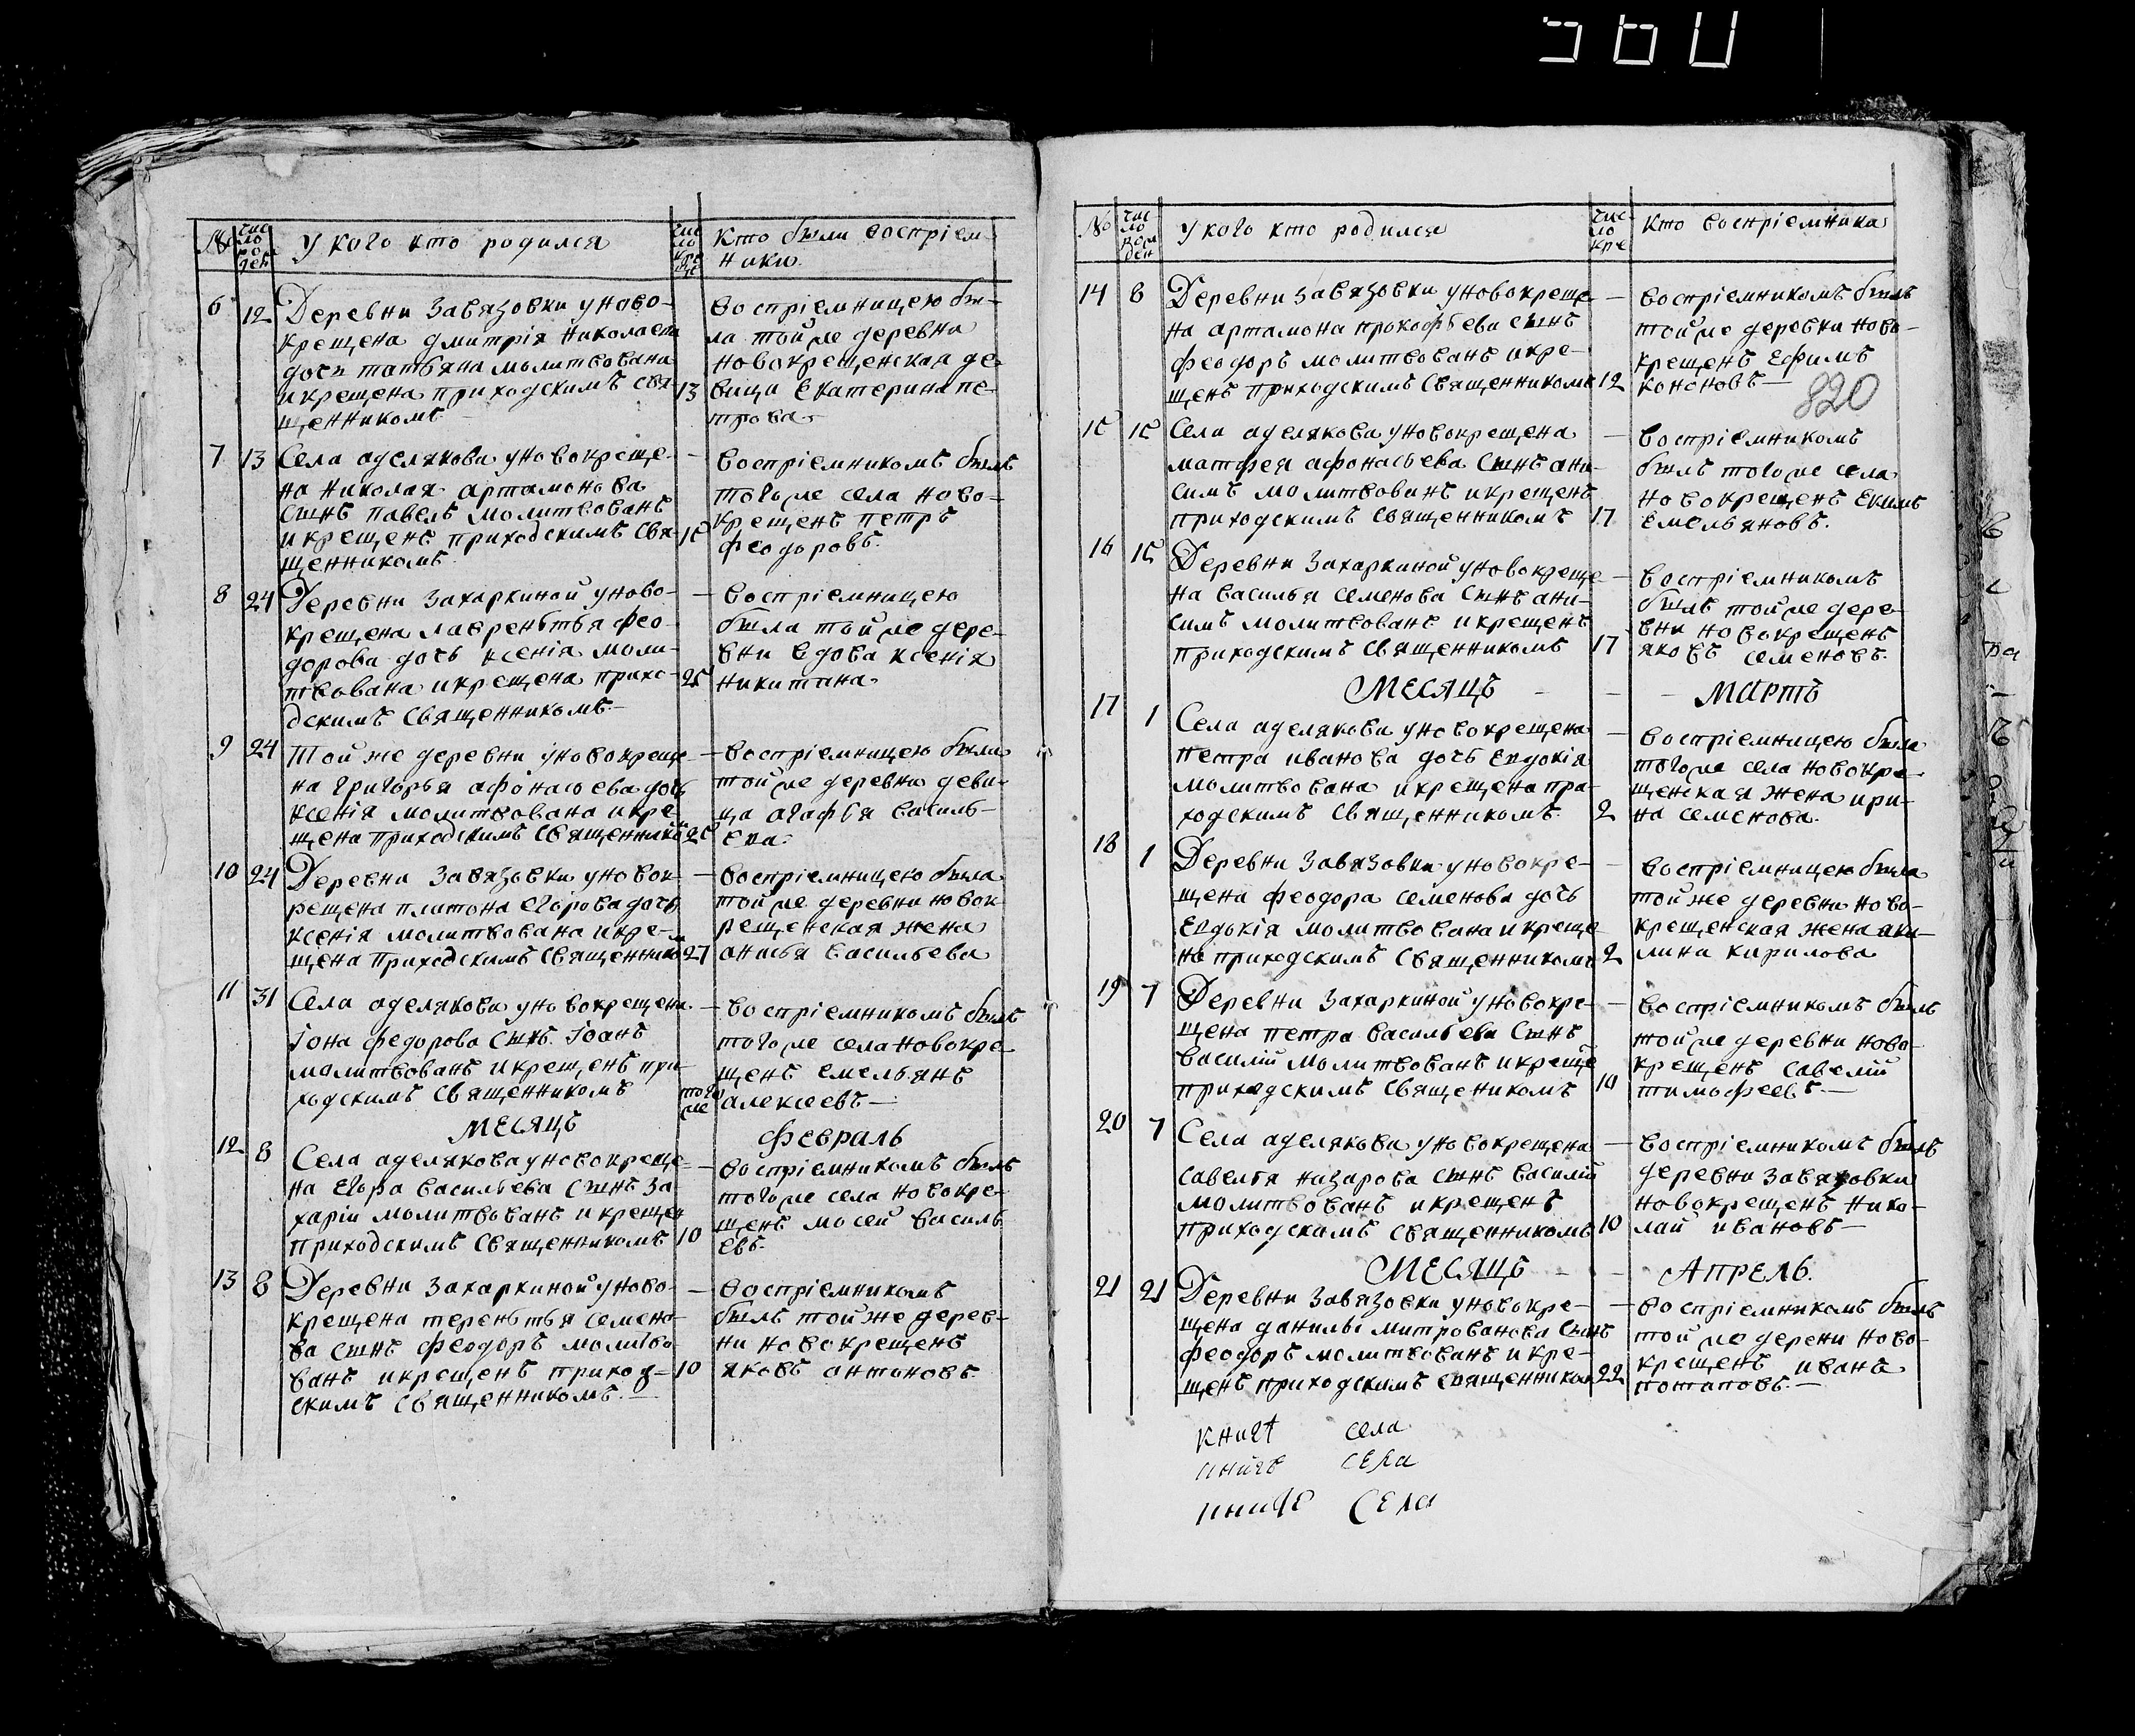 №
число рожден
У кого кто родился
число креще
Кто были воспрiем-
ники
6 12 Деревни Завязовки уново-
крещена дмитрiя николаева
дочь татьяна молитвована
и крещена приходскимъ свя-
щенникомъ
13
воспрiемницею бы-
ла тойже деревни
новокрещенская де-
вица екатерина пе-
трова
7 13 Села аделякова уновокреще-
на николая артамонова
сынъ павелъ молитвованъ
и крещенъ приходскимъ свя-
щенникомъ
15
воспрiемникомъ былъ
тогоже села ново-
крещенъ петръ
феодоровъ.
8 24 Деревни Захаркиной уново-
крещена лаврентья фео-
дорова дочь ксенiя моли-
твована и крещена прихо-
дскимъ священникомъ
25
воспрiемницею
была тойже дере-
вни вдова ксенiя
никитина
9 24 Той же деревни уновокреще-
на григорья афонасьева дочь
ксенiя молитвована и кре-
щена приходскимъ священнико
25
воспрiемницею была
тойже деревни деви-
ца агафья василь-
ева
10 24 Деревни Завязовки уновок-
рещена платона егорова дочь
ксенiя молитвована и кре-
щена приходскимъ священнико
27
воспрiемницею была
тойже деревни новок-
рещенская жена
анисья васильева
11 31 Села аделякова уновокрещена
Iона федорова сынъ Iоанъ
молитвованъ и крещенъ при-
ходскимъ священникомъ
того же
воспрiемникомъ былъ
тогоже села новокре-
щенъ емельянъ
алексеевъ
МЕСЯЦЪ февраль
12 8 Села аделякова уновокреще-
на егора васильева сынъ за
харiи молитвованъ и крещен
приходскимъ священникомъ
10
воспрiемникомъ былъ
тогоже села новокре-
щенъ мосей василь
евъ.
13 8 Деревни Захаркиной уново-
крещена терентья семено-
ва сынъ феодоръ молитво
ванъ и крещенъ приход-
скимъ священникомъ.
10
воспрiемникомъ
былъ той же дерев-
ни новокрещенъ
яковъ антоновъ.
№
число рожден
У кого кто родился
число кре
Кто воспрiемники
14 8 Деревни Завязовки уновокреще-
на артамона прокофьева сынъ
феодоръ молитвованъ и кре-
щенъ приходскимъ священникомъ
12
воспрiемникомъ былъ
тойже деревни ново-
крещенъ ефимъ
кононовъ
820
15 15 Села аделякова уновокрещена
матфея афонасьева сынъ ани-
симъ молитвованъ и крещенъ
приходскимъ священникомъ
17
воспрiемникомъ
былъ тогоже села
новокрещенъ екимъ
емельяновъ.
16 15 Деревни Захаркиной уновокреще-
на василья семенова сынъ ани-
симъ молитвованъ и крещенъ
приходскимъ священникомъ
17
воспрiемникомъ
былъ тойже дере-
вни новокрещенъ
яковъ семеновъ.
МЕСЯЦЪ Мартъ
17 1 Села аделякова уновокрещена
петра иванова дочь евдокiя
молитвована и крещена при-
ходскимъ священникомъ.
2
воспрiемницею была
тогоже села новокре-
щенская жена ири-
на семенова.
18 1 Деревни Завязовки уновокре-
щена феодора семенова дочь
евдокiя молитвована и креще
на приходскимъ священникомъ
2
воспрiемницею была
той же деревни ново-
крещенская жена аку-
лина кирилова
19 7 Деревни Захаркиной уновокре-
щена петра васильева сынъ
василiй молитвованъ и креще
приходскимъ священикомъ
10
воспрiемникомъ былъ
тойже деревни ново-
крещенъ савелiй
тимофеевъ.
20 7 Села аделякова уновокрещена
савелья назарова сынъ василiй
молитвованъ и крещенъ
приходскимъ священникомъ
10
воспрiемникомъ былъ
деревни завязовки
новокрещенъ нико-
лай ивановъ
МЕСЯЦЪ АПРЕЛЬ.
21 21 Деревни Завязовки уновокре-
щена данилы митрованова сынъ
феодоръ молитвованъ и кре-
щенъ приходскимъ священником
22
воспрiемникомъ былъ
тойже дерени ново-
крещенъ иванъ
потаповъ.
села
села
села